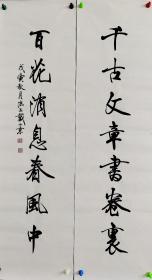 千古文章書卷裏
百花消息春風中
戊寅秋月